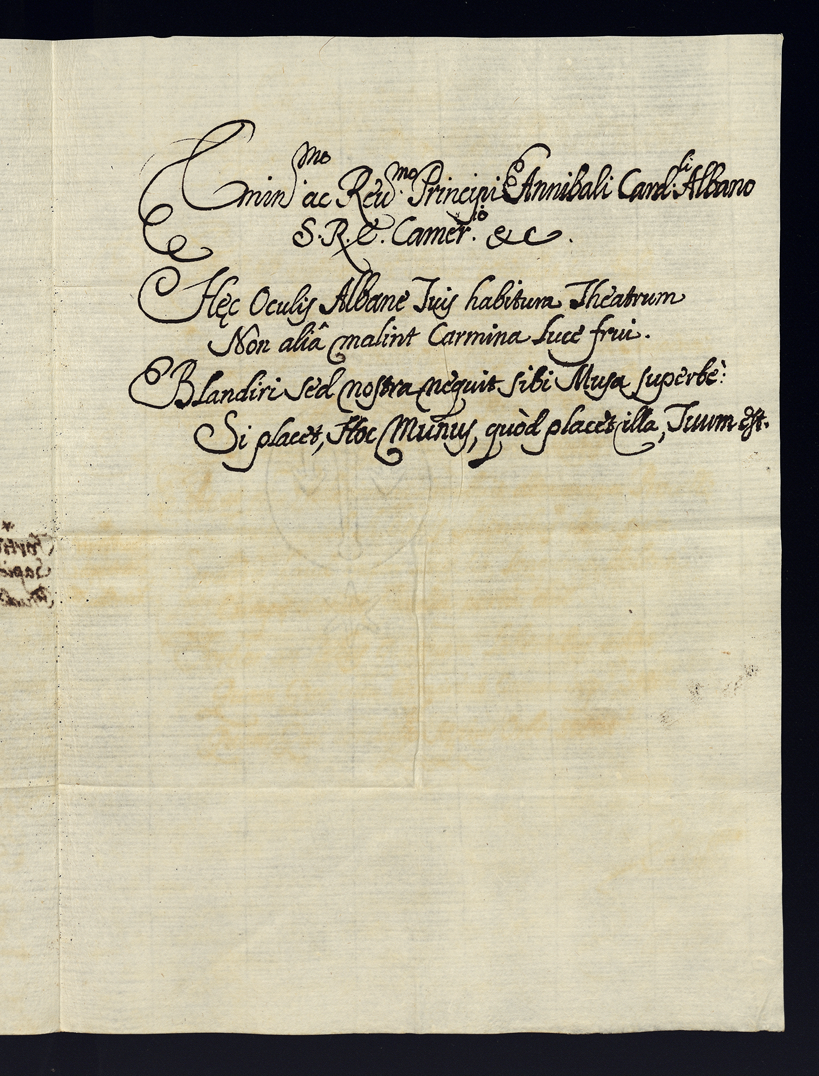 Emin.mo ac Reu.mo Principi Annibali Card.li Albano
S. R. E. Camer.io &c.
Hęc Oculis Albane Tuis habitura Theatrum
Non aliâ malint Carmina luce frui.
Blandiri sed nostra nequit sibi Musa superbè:
Si placet, Hoc Munus, quòd placet illa, Tuum est.